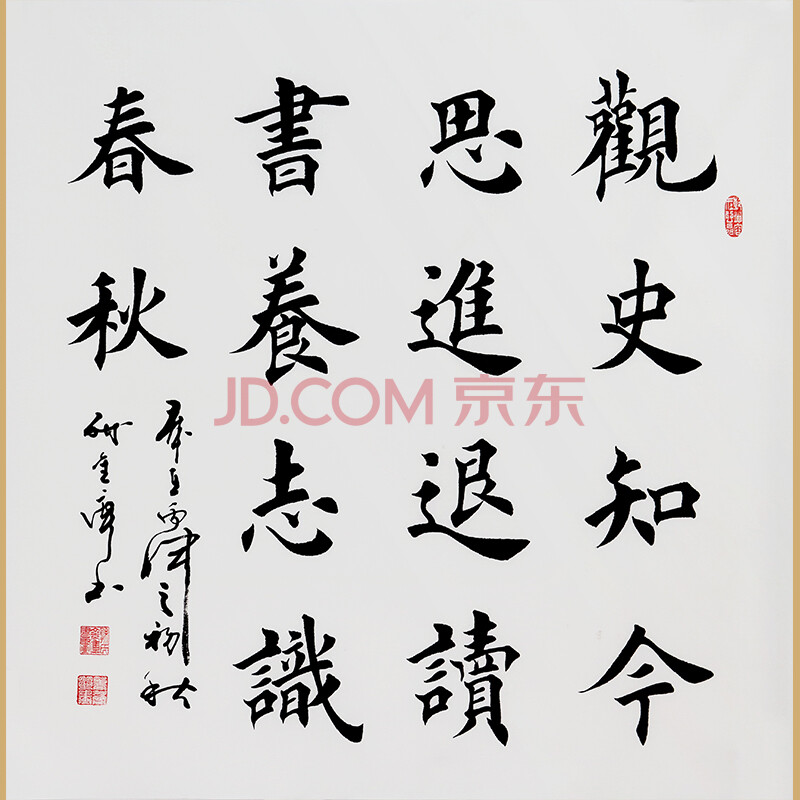 觀史知今
思進退讀
書養志識
春秋
之初秋
書
JD.COM 京东